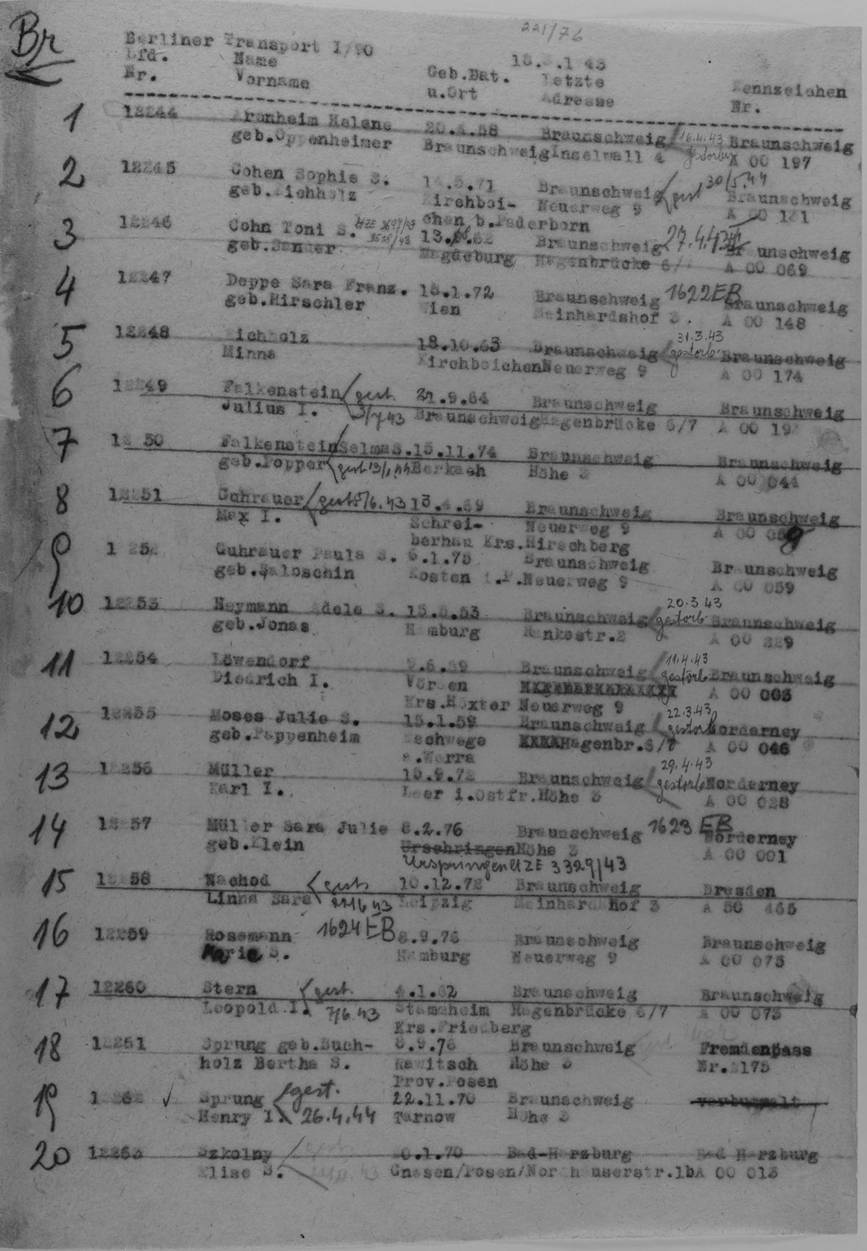 Br
221/76
Berliner Transport I/90
Lfd. Name Geb.Dat. Letzte Kennzeichen
Nr. Vorname u.Ort Adresse Nr.
1 12244 Aronheim Helene 20.4.58 Braunschweig gestorb. Braunschweig
geb.Oppenheimer Braunschweig Inselwall 4 A 00 197
2 12245 Cohen Sophie S. 14.5.71 Braunschweig gest 30/5.44 Braunschweig
geb.Eichholz Kirchboi- Neuerweg 9 A 00 181
chen b.Paderborn
3 12246 Cohn Toni S. Braunschweig Braunschweig
geb.Sander Magdeburg Hagenbrücke 6/7 A 00 069
4 12247 Deppe Sara Franz. 18.1.72 Braunschweig 1622 EB Braunschweig
geb.Hirschler Wien Meinhardshof 3. A 00 148
5 12248 Eichholz 18.10.63 Braunschweig 31.3.43 gestorb. Braunschweig
Minna Kirchboichen Neuerweg 9 A 00 174
6 12249 Falkenstein gest. 21.9.64 Braunschweig Braunschweig
Julius I. 3/7 43 Braunschweig Hagenbrücke 6/7 A 00 19
7 12 50 Falkenstein Selma S. 15.11.74 Braunschweig Braunschweig
geb.Popper gest Berkach Höhe 3 A 00 044
8 12251 Guhrauer gest. 6.43 13.4.69 Braunschweig Braunschweig
Max I. Schrei- Neuerweg 9 A 00
berhau Krs.Hirschberg
9 1 252 Guhrauer Paula S. 6.1.75 Braunschweig Braunschweig
geb.Saloschin Kosten i.P. Neuerweg 9 A 00 059
10 12253 Heymann Adele S. 15.5.53 Braunschweig 20.3 43 gestorb Braunschweig
geb.Jonas Hamburg A 00 229
11 12254 Löwendorf Braunschweig 11.4.43 gestorb. Braunschweig
Diedrich I. Vörden XXXXXXXXXXXXXXXX A 00 005
Krs.Höxter Neuerweg 9
12 12255 Moses Julie S. 15.1.59 Braunschweig 22.3.43 gestorb Norderney
geb.Pappenheim Eschwege XXXX Hagenbr.6/7 A 00 046
a.Werra
13 12256 Müller 10.9.72 Braunschweig 29.4.43 gestorb Norderney
Karl I. Leer i.Ostfr. Höhe 3 A 00 028
14 12 57 Müller Sara Julie 8.2.76 Braunschweig 1623 EB Norderney
geb.Klein Urschringen Höhe 3 A 00 001
Urspringen UZE 3329/43
15 12258 Nachod gest. 10.12.72 Braunschweig Dresden
Linna Sara Leipzig Meinhardshof 3 A 50 465
16 12259 Rosemann 1624 EB 8.9.76 Braunschweig Braunschweig
Marie S. Hamburg Neuerweg 9 A 00 073
17 12260 Stern gest. 4.1.62 Braunschweig Braunschweig
Leopold I. 7/6.43 Stammheim Hagenbrücke 6/7 A 00 075
Krs.Friedberg
18 12261 Sprung geb.Buch- 8.9.76 Braunschweig Fremdenpass
holz Bertha S. Rawitsch Höhe 3 Nr.2175
Prov.Posen
19 12262 Sprung gest. 22.11.70 Braunschweig
Henry I. 26.4.44 Tarnow Höhe 3
20 12263 Szkolny Bad-Harzburg Bad Harzburg
Elise S. Gnesen/Posen/ A 00 013